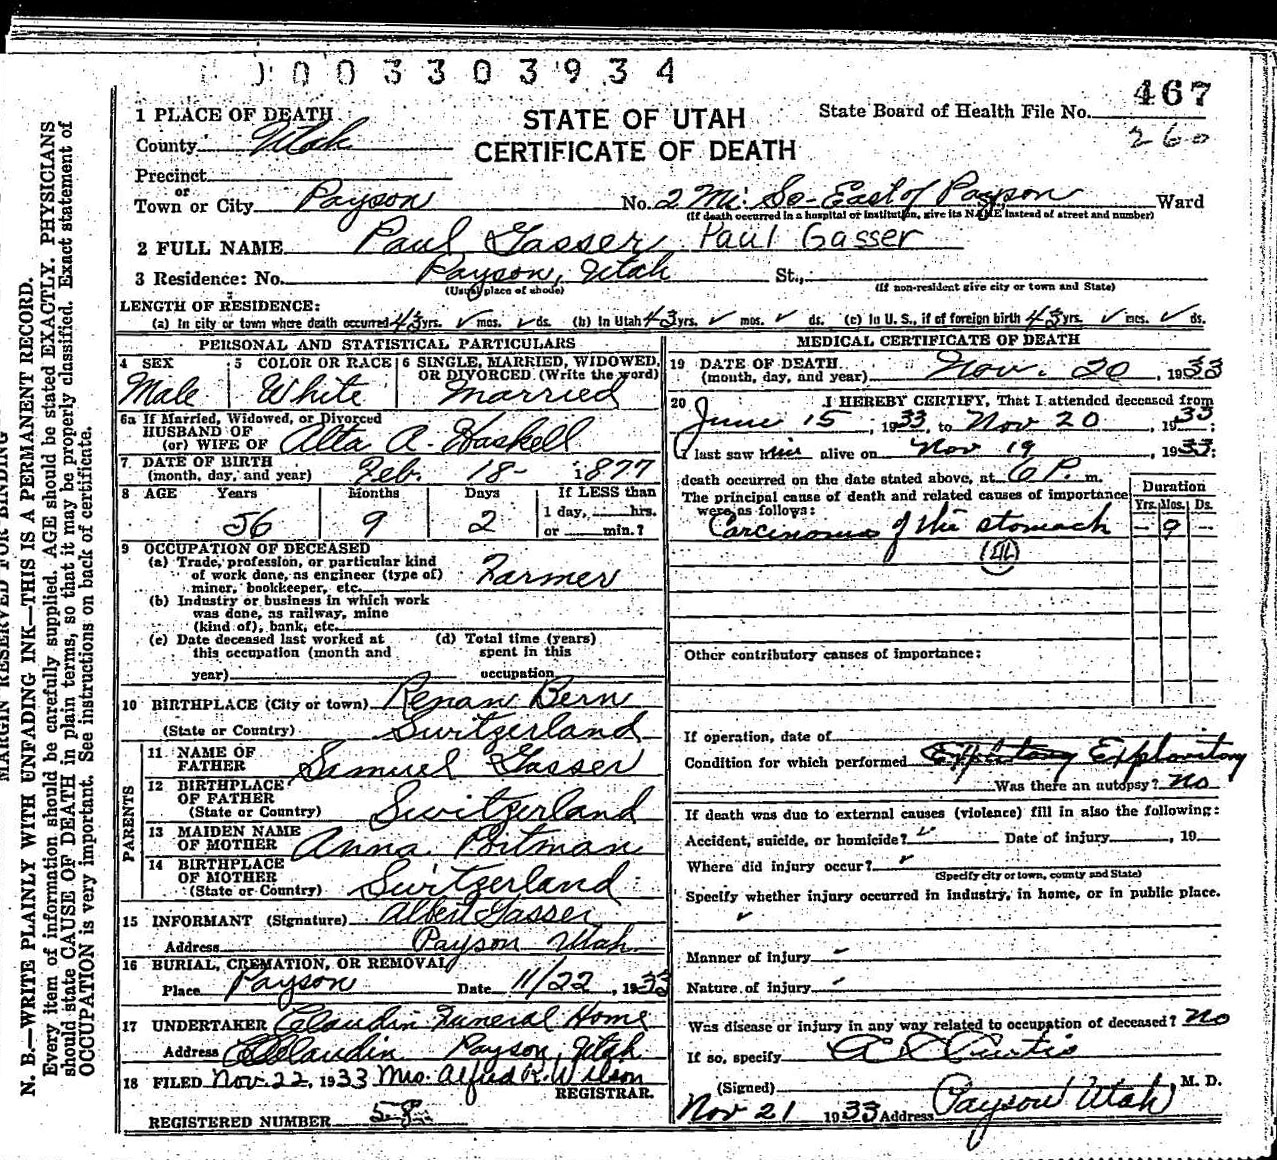 0003303934
467
1 PLACE OF DEATH
STATE OF UTAH
State Board of Health File No.
260
County Utah
CERTIFICATE OF DEATH
Precinct
or
Town or City Payson No. 2 Mi. So-East of Payson Ward
(If death occurred in a hospital or institution, give its NAME instead of street and number)
2 FULL NAME Paul Gasser Paul Gasser
3 Residence: No. Payson, Utah St.,
(Usual place of abode) (If non-resident give city or town and State)
LENGTH OF RESIDENCE:
(a) In city or town where death occurred 43 yrs. ✓ mos. ✓ ds. (b) In Utah 43 yrs. ✓ mos. ✓ ds. (c) In U. S., if of foreign birth 43 yrs. ✓ mos. ✓ ds.
PERSONAL AND STATISTICAL PARTICULARS
4 SEX
Male
5 COLOR OR RACE
White
6 SINGLE, MARRIED, WIDOWED,
OR DIVORCED (Write the word)
Married
6a If Married, Widowed, or Divorced
HUSBAND OF
(or) WIFE OF Alta A. Haskell
7 DATE OF BIRTH
(month, day, and year) Feb. 18- 1877
8 AGE Years Months Days If LESS than
1 day, hrs.
56 9 2 or min.?
9 OCCUPATION OF DECEASED
(a) Trade, profession, or particular kind
of work done, as engineer (type of) Farmer
miner, bookkeeper, etc.
(b) Industry or business in which work
was done, as railway, mine
(kind of), bank, etc.
(c) Date deceased last worked at (d) Total time (years)
this occupation (month and spent in this
year) occupation
10 BIRTHPLACE (City or town) Renan Bern
(State or Country) Switzerland
PARENTS
11 NAME OF
FATHER Samuel Gasser
12 BIRTHPLACE
OF FATHER
(State or Country) Switzerland
13 MAIDEN NAME
OF MOTHER Anna Portman
14 BIRTHPLACE
OF MOTHER
(State or Country) Switzerland
15 INFORMANT (Signature) Albert Gasser
Address Payson Utah
16 BURIAL, CREMATION, OR REMOVAL
Place Payson Date 11/22, 1933
17 UNDERTAKER Claudin Funeral Home
Address Claudin Payson, Utah
18 FILED Nov. 22, 1933 Mrs. Alfred R. Wilson
REGISTRAR.
REGISTERED NUMBER 58
MEDICAL CERTIFICATE OF DEATH
19 DATE OF DEATH
(month, day, and year) Nov. 20, 1933
20 I HEREBY CERTIFY, That I attended deceased from
June 15, 1933, to Nov 20, 1933;
I last saw him alive on Nov 19, 1933;
death occurred on the date stated above, at 6 P. m.
The principal cause of death and related causes of importance
were as follows:
Duration
Yrs. Mos. Ds.
Carcinoma of the stomach - 9 -
Other contributory causes of importance:
If operation, date of
Condition for which performed Exploratory
Was there an autopsy? No
If death was due to external causes (violence) fill in also the following:
Accident, suicide, or homicide? ✓ Date of injury, 19
Where did injury occur? ✓
(Specify city or town, county and State)
Specify whether injury occurred in industry, in home, or in public place.
✓
Manner of injury –
Nature of injury –
Was disease or injury in any way related to occupation of deceased? No
If so, specify
(Signed) Curtis M. D.
Nov 21 1933 Address Payson Utah
MARGIN RESERVED FOR BINDING
N. B.—WRITE PLAINLY WITH UNFADING INK—THIS IS A PERMANENT RECORD.
Every item of information should be carefully supplied. AGE should be stated EXACTLY. PHYSICIANS
should state CAUSE OF DEATH in plain terms, so that it may be properly classified. Exact statement of
OCCUPATION is very important. See instructions on back of certificate.